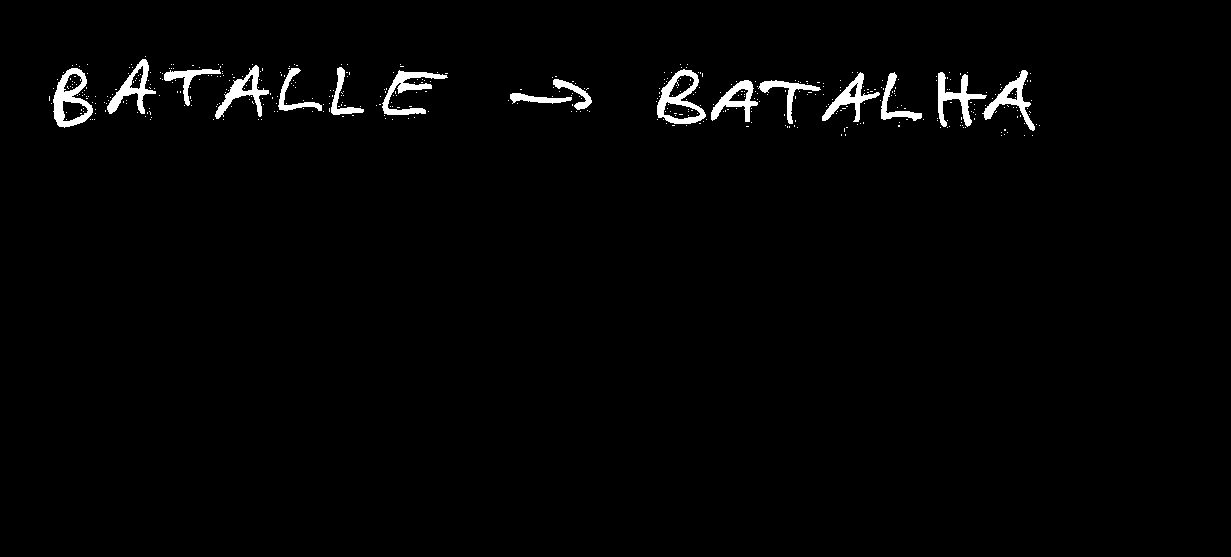 BATALLE → BATALHA